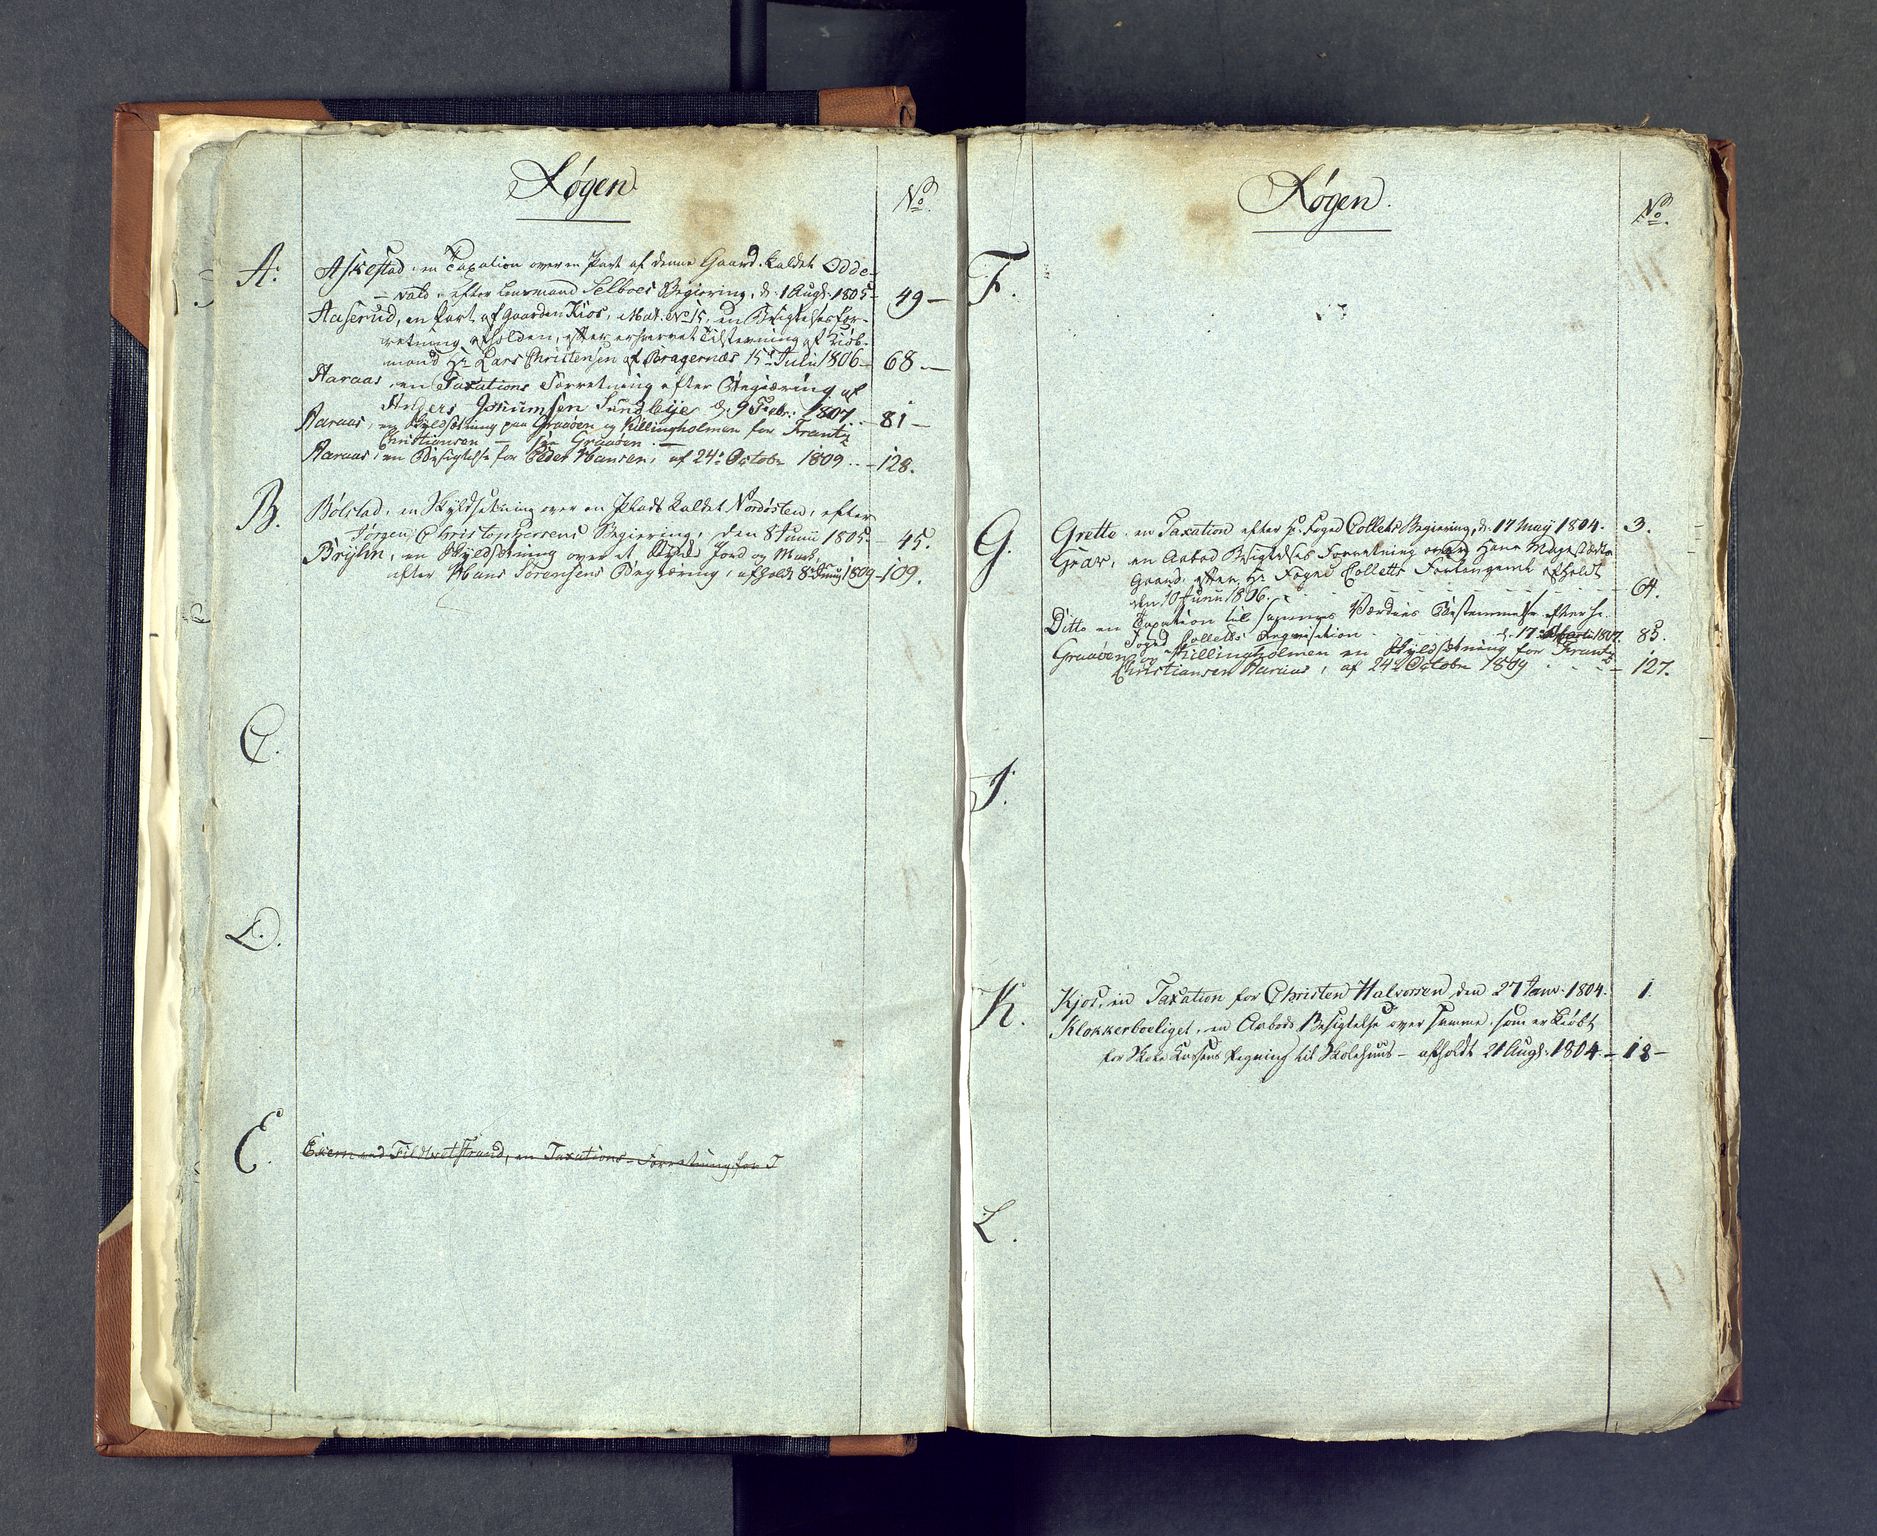 Røgen
No.
A.
Askestad, en Taxation over en Part af denne Gaard kaldet Odde-
vald - efter Lensmand Selboes Begiering, d. 1 Augt. 1805 - 49 -
Aaserud, en Part af gaarden Kios, Mat. No 15, en Besigtelsesfor-
retning afholden, efter erhvervet Tilstevning af Kiøb-
mand Hr Lars Christensen af Bragernæs 15de Julii 1806 - 68 -
Aaraas, en Taxations Forretning efter Begiæring af
Sundbye d. 9 Febr. 1807. - 81 -
Aaraas, en Skyldsætning paa Graaøen og Killingholmen for Frantz
Christiansen - see Graaøen. -
Aaraas, en Besigtelse for Peder Hansen, af 24de Octobr 1809 - 128.
B.
Bölstad, en Skyldsetning over en Plads kaldet Nordøsten, efter
Jørgen Christophersens Begiering, den 8 Junii 1805. 45.
Bröhn, en Skyldsætning over et Stykke Jord og Mark,
efter Hans Sørensens Begiæring, afholdt 8de Junii 1809 - 109.
C.
D.
E.
Ekern med Fildtvetstrand, en Taxations-Forretning for T
Røgen.
No.
F.
G.
Grette, en Taxation efter Hr. Foged Collets Begiering, d. 17 Maÿ 1804. 3.
Grav, en Aabod Besigtelses Forretning over Hans Majestæts
Gaard, efter Hr Foged Colletts Forlangende afholdt
den 10 Junii 1806. 64.
Ditto en Taxation til sammes Værdies Bestemmelse efter Hr.
Foged Colletts Requisition d. 17 1807. 85.
Graaøen og Killingholmen en Skyldsætning for Frantz
Christiansen Aaraas, af 24de Octobr 1809 - 127.
I.
K.
Kjos, en Taxation for Christen Halvorsen den 27 Janv. 1804. 1.
Klokkerboeliget, en Aabods Besigtelse over samme, som er kiøbt
for Skole Kassens Regning til Skolehuus - afholdt 21 Augt. 1804 - 18 -
L.